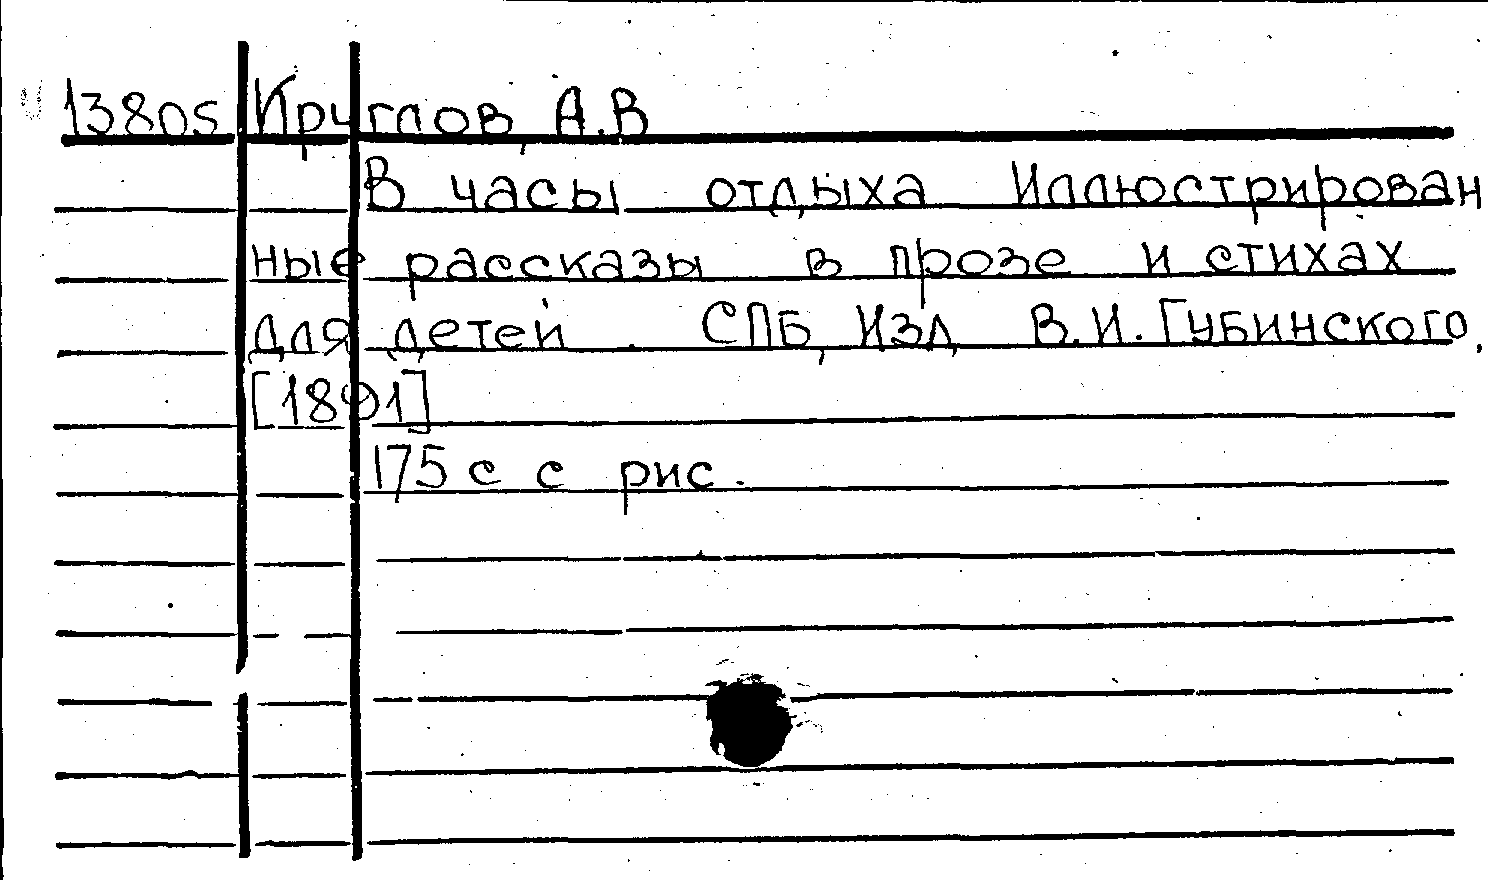 13805 Круглов, А.В
В часы отдыха Иллюстрирован
ные рассказы в прозе и стихах
для детей. СПБ, Изд В.И.Губинского,
[1891]
175 с с рис.